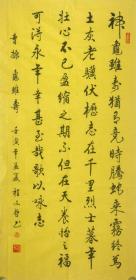 神龜雖壽猶有竟時騰蛇乘霧終為
土灰老驥伏櫪志在千里烈士暮年
壯心不已盈縮之期不但在天養怡之福
可得永年幸甚至哉歌以詠志
曹操龜雖壽 壬寅年